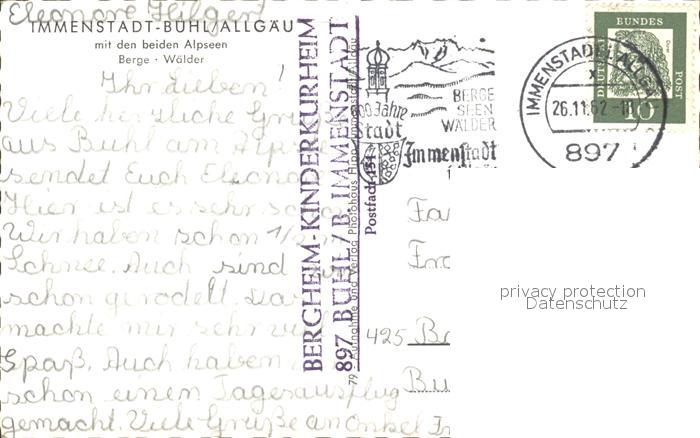 Eleonore Hilgen
IMMENSTADT-BÜHL/ALLGÄU
mit den beiden Alpseen
Berge · Wälder
Ihr Lieben!
Viele herzliche Grüße
aus Bühl am Alpsee
sendet Euch Eleonore
Hier ist es sehr schön
Wir haben schon 1/2 m
Schnee. Auch sind
schon gerodelt. Das
machte mir sehr viel
Spaß. Auch haben
schon einen Tagesausflug
gemacht. Viele Grüße an Onkel
BERGHEIM-KINDERKURHEIM
897 BÜHL/B. IMMENSTADT
Postfach 151
79 Aufnahme und Verlag Photohaus
600 Jahre
Stadt
Immenstadt
BERGE
SEEN
WÄLDER
IMMENSTADT (ALLGÄU)
26.11.62
897
DEUTSCHE
BUNDES
POST
10
Fa
Fr
425 B
Bu
privacy protection
Datenschutz